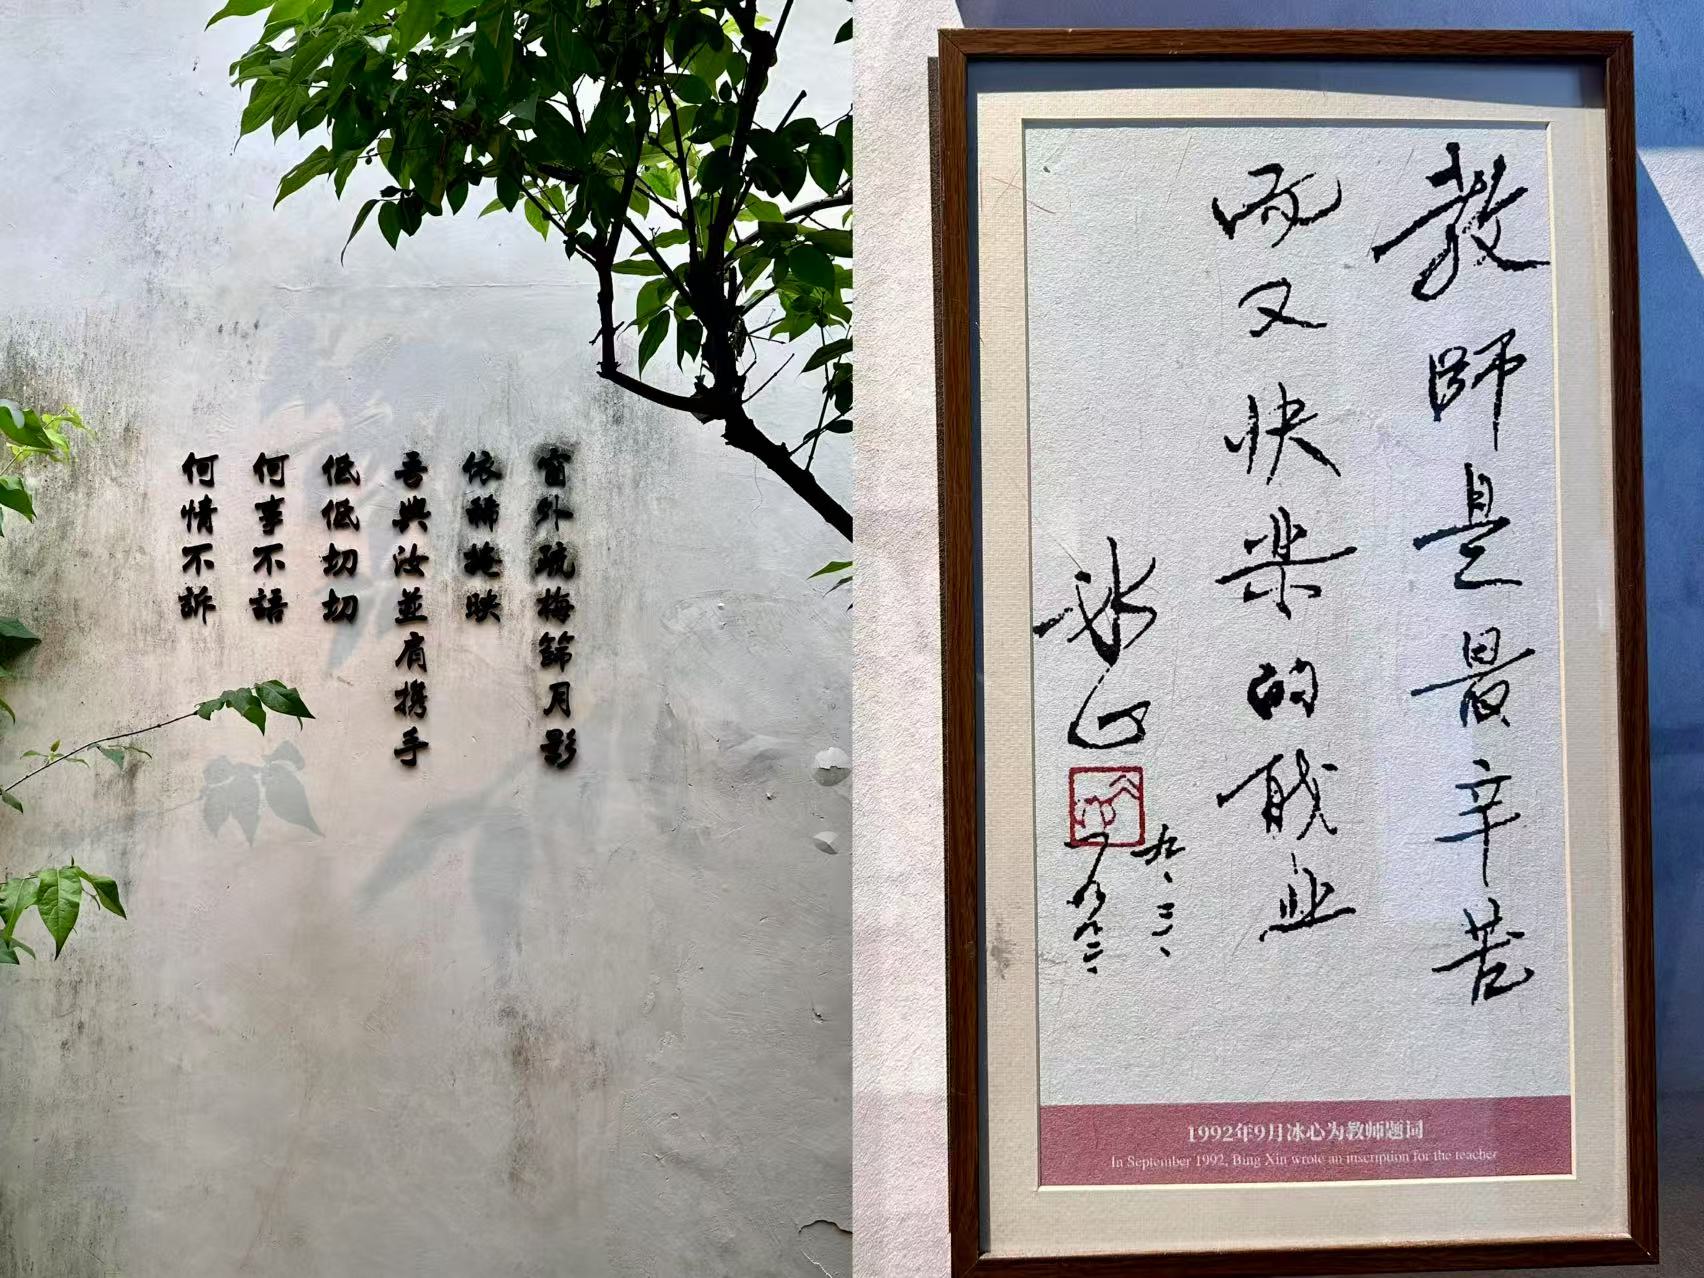 窗外疏梅篩月影
依稀掩映
吾與汝並肩携手
低低切切
何事不語
何情不訴
教師是最辛苦
而又快樂的职业
冰心
九、二、
一九九二、
1992年9月冰心为教师题词
In September 1992, Bing Xin wrote an inscription for the teacher